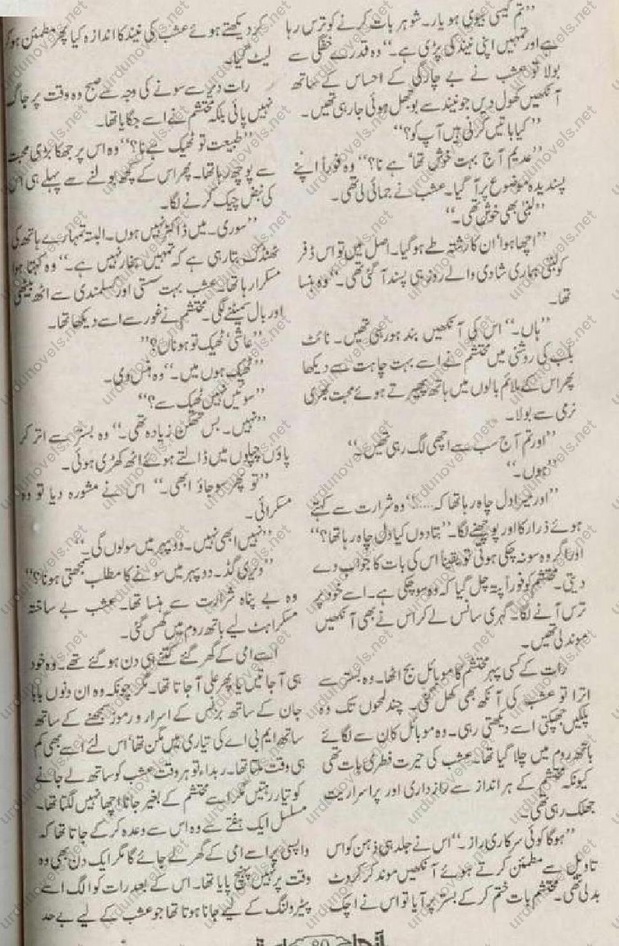 ’’تم کیسی بیوی ہو یار۔ شوہر بات کرنے کو ترس رہا
ہے اور تمہیں اپنی نیند کی پڑی ہے۔‘‘ وہ قدرے خفگی سے
بولا تو عشب نے بے چارگی کے احساس کے ساتھ
آنکھیں کھول دیں جو نیند سے بوجھل ہوئی جا رہی تھیں۔
’’کیا باتیں کرنی ہیں آپ کو؟‘‘
’’عدیم آج بہت خوش تھا‘ ہے نا؟‘‘ وہ فوراً اپنے
پسندیدہ موضوع پر آ گیا۔ عشب نے جمائی لی تھی۔
’’لبنیٰ بھی خوش تھی۔‘‘
’’اچھا ہوا‘ ان کا رشتہ طے ہو گیا۔ اصل میں تو اس ڈفر
کو لبنیٰ ہماری شادی والے روز ہی پسند آ گئی تھی۔‘‘ وہ ہنسا
تھا۔
’’ہاں۔‘‘ اس کی آنکھیں بند ہو رہی تھیں۔ نائٹ
بلب کی روشنی میں محتشم نے اسے بہت چاہت سے دیکھا
پھر اس کے ملائم بالوں میں ہاتھ پھیرتے ہوئے محبت بھری
نرمی سے بولا۔
’’اور تم آج سب سے اچھی لگ رہی تھیں۔‘‘
’’ہوں۔‘‘
’’اور میرا دل چاہ رہا تھا کہ......؟‘‘ وہ شرارت سے کہتے
ہوئے ذرا رکا اور پوچھنے لگا۔ ’’بتا دوں کیا دل چاہ رہا تھا؟‘‘
اور اگر وہ سو نہ چکی ہوتی تو یقیناً اس کی بات کا جواب دے
دیتی۔ محتشم کو فوراً پتہ چل گیا کہ وہ سو چکی ہے۔ اسے خود پر
ترس آنے لگا۔ گہری سانس لے کر اس نے بھی آنکھیں
موند لی تھیں۔
رات کے کسی پہر محتشم کا موبائل بج اٹھا۔ وہ بستر سے
اترا تو عشب کی آنکھ بھی کھل گئی۔ چند لمحوں تک وہ
پلکیں جھپکتی اسے دیکھتی رہی۔ وہ موبائل کان سے لگائے
باتھ روم میں چلا گیا تھا۔ عشب کی حیرت فطری بات تھی
کیونکہ محتشم کے ہر انداز سے رازداری اور پراسراریت
جھلک رہی تھی۔
’’ہوگا کوئی سرکاری راز۔‘‘ اس نے جلد ہی ذہن کو اس
تاویل سے مطمئن کرتے ہوئے آنکھیں موند کر کروٹ
بدلی تھی۔ محتشم بات ختم کر کے بستر پر آیا تو اس نے اچک
کر دیکھتے ہوئے عشب کی نیند کا اندازہ کیا پھر مطمئن ہو کر
لیٹ گیا۔
رات دیر سے سونے کی وجہ سے صبح وہ وقت پر جاگ
نہیں پائی بلکہ محتشم نے اسے جگایا تھا۔
’’طبیعت تو ٹھیک ہے نا؟‘‘ وہ اس پر جھکا بڑی محبت
سے پوچھ رہا تھا۔ پھر اس کے کچھ بولنے سے پہلے ہی اس
کی نبض چیک کرنے لگا۔
’’سوری۔ میں ڈاکٹر نہیں ہوں۔ البتہ تمہارے ہاتھ کی
ٹھنڈک بتا رہی ہے کہ تمہیں بخار نہیں ہے۔‘‘ وہ کہتا ہوا
مسکرا رہا تھا۔ عشب بہت سستی اور کسلمندی سے اٹھ بیٹھی
اور بال سمیٹنے لگی۔ محتشم نے غور سے اسے دیکھا تھا۔
’’عاشی ٹھیک تو ہو ناں؟‘‘
’’ٹھیک ہوں میں۔‘‘ وہ ہنس دی۔
’’سوئیں نہیں ٹھیک سے؟‘‘
’’نہیں۔ بس تھکن زیادہ تھی۔‘‘ وہ بستر سے اتر کر
پاؤں چپلوں میں ڈالتے ہوئے اٹھ کھڑی ہوئی۔
’’تو پھر سو جاؤ ابھی۔‘‘ اس نے مشورہ دیا تو وہ
مسکرائی۔
’’نہیں ابھی نہیں۔ دوپہر میں سولوں گی۔‘‘
’’ویری گڈ۔ دوپہر میں سونے کا مطلب سمجھتی ہو نا؟‘‘
وہ بے پناہ شرارت سے ہنسا تھا۔ عشب بے ساختہ
مسکراہٹ لیے باتھ روم میں گھس گئی۔
اسے امی کے گھر گئے کتنے ہی دن ہو گئے تھے۔ وہ خود
ہی آ جاتیں یا پھر علی آ جاتا تھا۔ مگر چونکہ وہ ان دنوں بابا
جان کے ساتھ بزنس کے اسرار و رموز سمجھنے کے ساتھ
ساتھ ایم بی اے کی تیاری میں مگن تھا‘ اس لئے اسے بھی کم
ہی وقت ملتا تھا۔ ربداء تو ہر وقت عشب کو ساتھ لے جانے
کو تیار رہتیں مگر اسے محتشم کے بغیر جانا اچھا نہیں لگتا تھا۔
مسلسل ایک ہفتے سے وہ اس سے وعدہ کر کے جاتا تھا کہ
واپسی پر اسے امی کے گھر لے جائے گا مگر ایک دن بھی وہ
وقت پر نہیں پہنچ پایا تھا۔ اس کے بعد رات کو الگ اسے
پیٹرولنگ کے لیے جانا ہوتا تھا جو عشب کے لیے بے حد
80